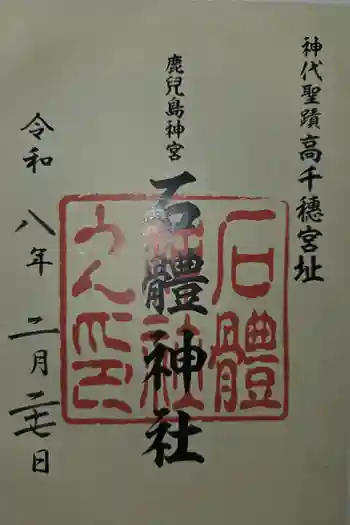 神代聖蹟高千穂宮址
鹿兒島神宮
石體神社
石體神社
令和八年二月二七日